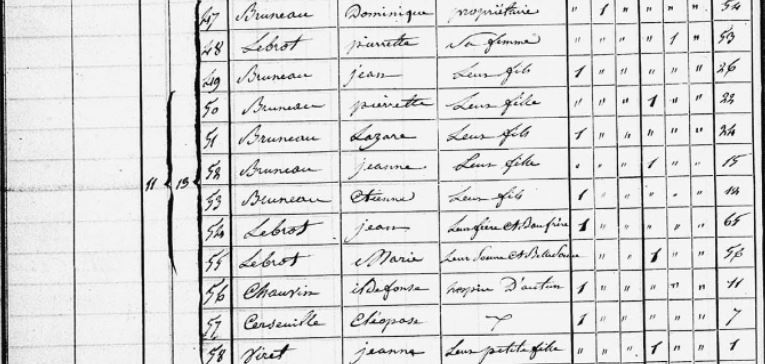 47 Bruneau Dominique propriétaire " 1 " " " " 54
48 Lebrot pierrette Sa femme " " " " 1 " 53
49 Bruneau jean Leur fils 1 " " " " " 26
50 Bruneau pierrette Leur fille " " " 1 " " 22
51 Bruneau Lazare Leur fils 1 " " " " " 24
52 Bruneau jeanne Leur fille " " " 1 " " 15
11 13 53 Bruneau Etienne Leur fils 1 " " " " " 14
54 Lebrot jean Leur frère et Beau frère 1 " " " " " 65
55 Lebrot Marie Leur Soeur et Belle Soeur " " " 1 " " 56
56 Chauvin ildefonse hospice D'autun 1 " " " " " 11
57 Cerseuille Cléopas 1 " " " " " 7
58 Viret jeanne Leur petite fille " " " 1 " " 1